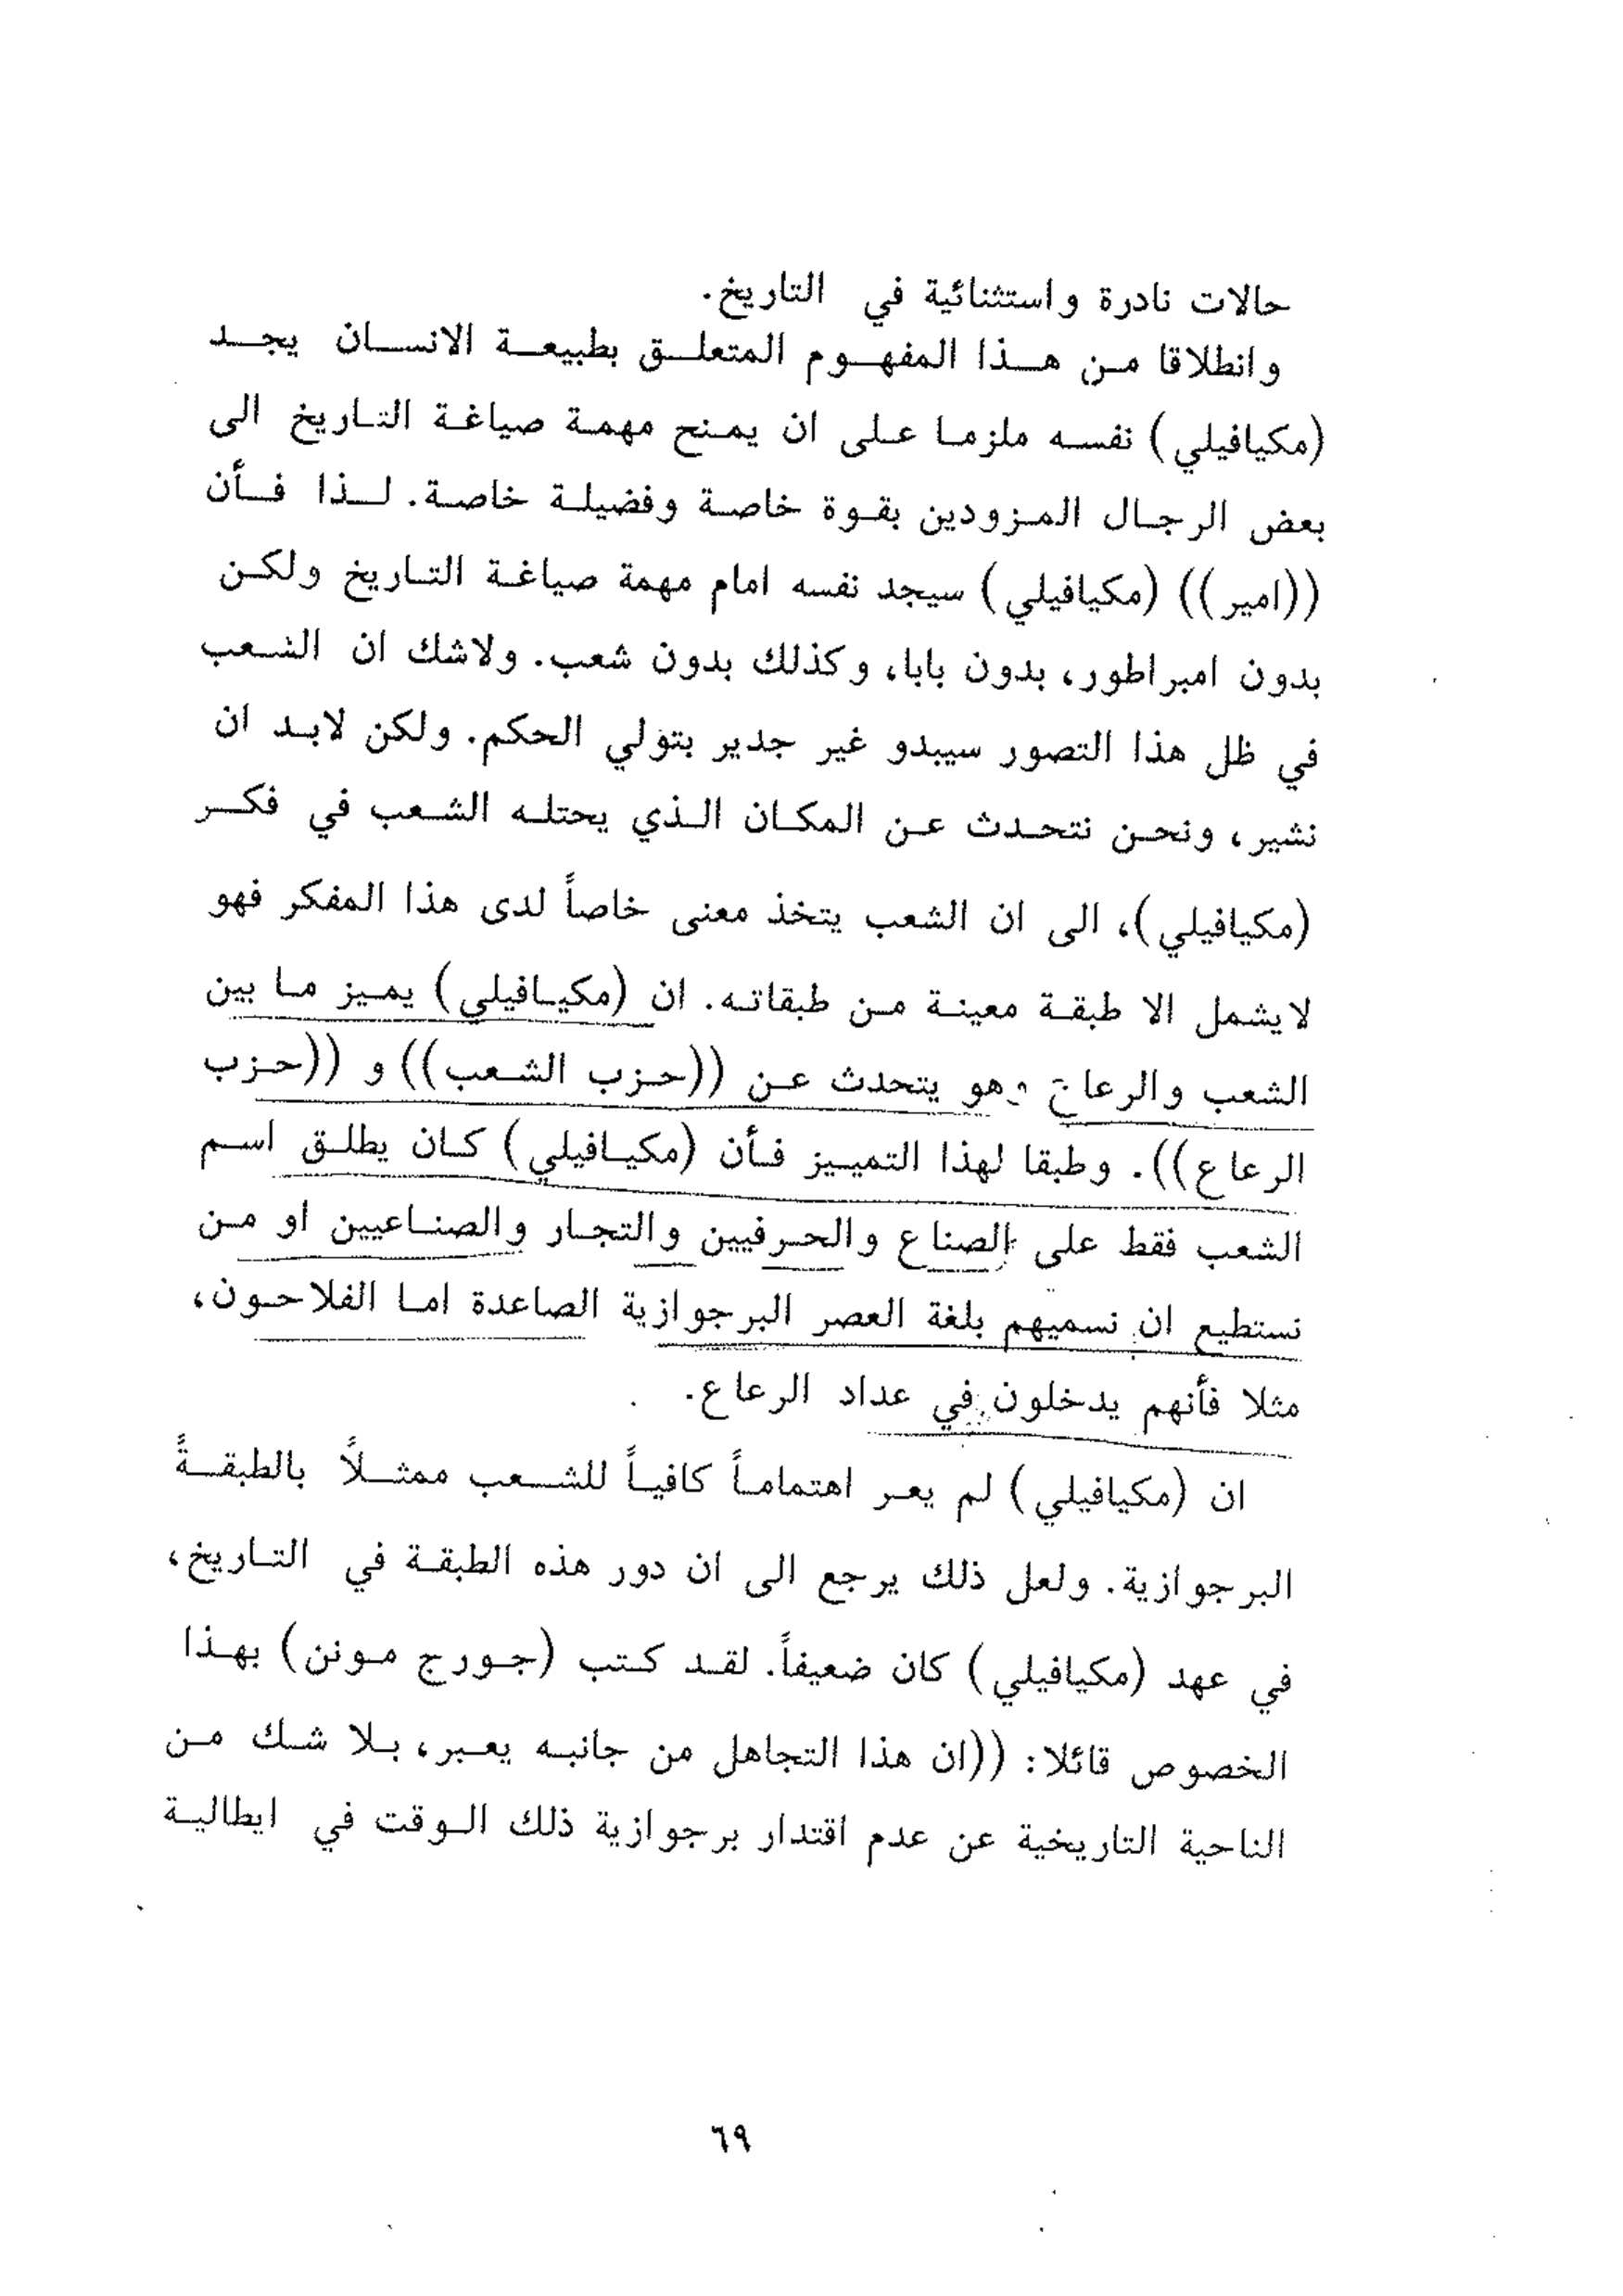 حالات نادرة واستثنائية في التاريخ.
وانطلاقا من هذا المفهوم المتعلق بطبيعة الانسان يجد
(مكيافيلي) نفسه ملزما على ان يمنح مهمة صياغة التاريخ الى
بعض الرجال المزودين بقوة خاصة وفضيلة خاصة. لذا فأن
((امير)) (مكيافيلي) سيجد نفسه امام مهمة صياغة التاريخ ولكن
بدون امبراطور، بدون بابا، وكذلك بدون شعب. ولاشك ان الشعب
في ظل هذا التصور سيبدو غير جدير بتولي الحكم. ولكن لابد ان
نشير، ونحن نتحدث عن المكان الذي يحتله الشعب في فكر
(مكيافيلي)، الى ان الشعب يتخذ معنى خاصاً لدى هذا المفكر فهو
لايشمل الا طبقة معينة من طبقاته. ان (مكيافيلي) يميز ما بين
الشعب والرعاع وهو يتحدث عن ((حزب الشعب)) و ((حزب
الرعاع)). وطبقا لهذا التمييز فأن (مكيافيلي) كان يطلق اسم
الشعب فقط على الصناع والحرفيين والتجار والصناعيين او من
نستطيع ان نسميهم بلغة العصر البرجوازية الصاعدة اما الفلاحون،
مثلا فأنهم يدخلون في عداد الرعاع.
ان (مكيافيلي) لم يعر اهتماماً كافياً للشعب ممثلاً بالطبقةً
البرجوازية. ولعل ذلك يرجع الى ان دور هذه الطبقة في التاريخ،
في عهد (مكيافيلي) كان ضعيفاً. لقد كتب (جورج مونن) بهذا
الخصوص قائلا: ((ان هذا التجاهل من جانبه يعبر، بلا شك من
الناحية التاريخية عن عدم اقتدار برجوازية ذلك الوقت في ايطالية
٦٩